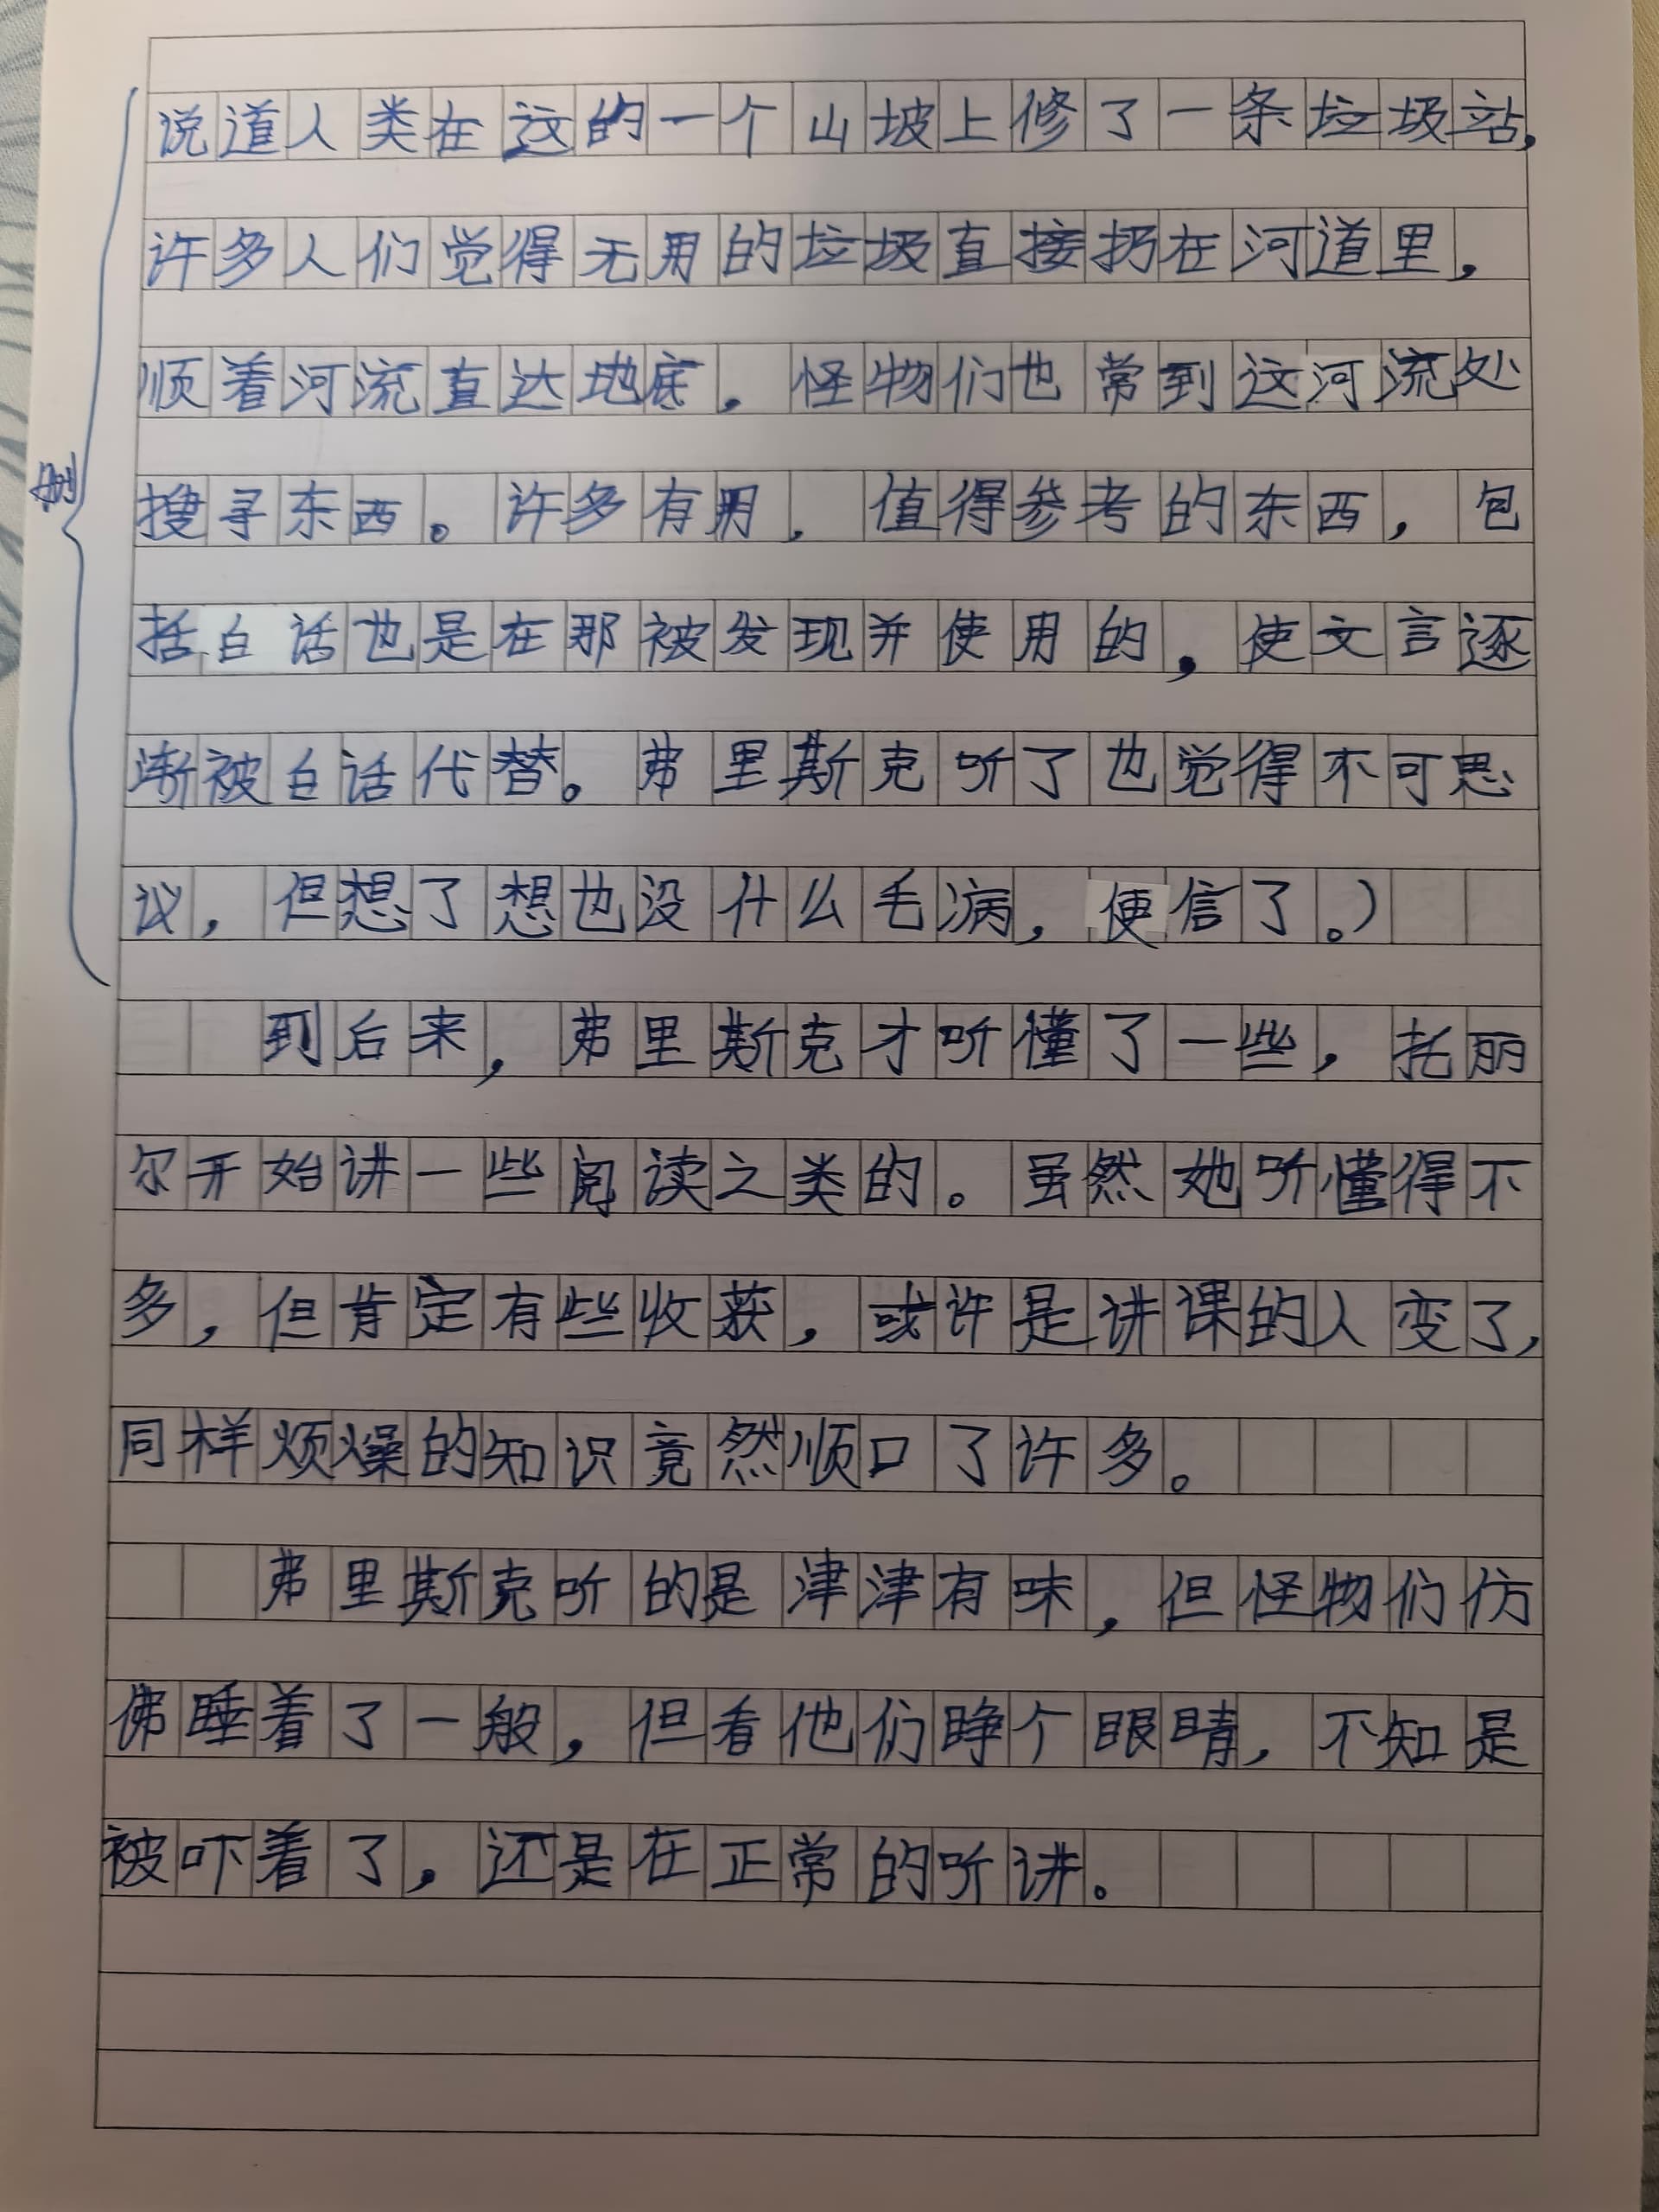 说道人类在这的一个山坡上修了一条垃圾站,
许多人们觉得无用的垃圾直接扔在河道里，
顺着河流直达地底。怪物们也常到这河流处
搜寻东西。许多有用，值得参考的东西，包
括白话也是在那被发现并使用的，使文言逐
渐被白话代替。弗里斯克听了也觉得不可思
议，但想了想也没什么毛病，便信了。）
到后来，弗里斯克才听懂了一些，托丽
尔开始讲一些阅读之类的。虽然她听懂得不
多，但肯定有些收获，或许是讲课的人变了，
同样烦燥的知识竟然顺口了许多。
弗里斯克听的是津津有味，但怪物们仿
佛睡着了一般，但看他们睁个眼睛，不知是
被吓着了，还是在正常的听讲。